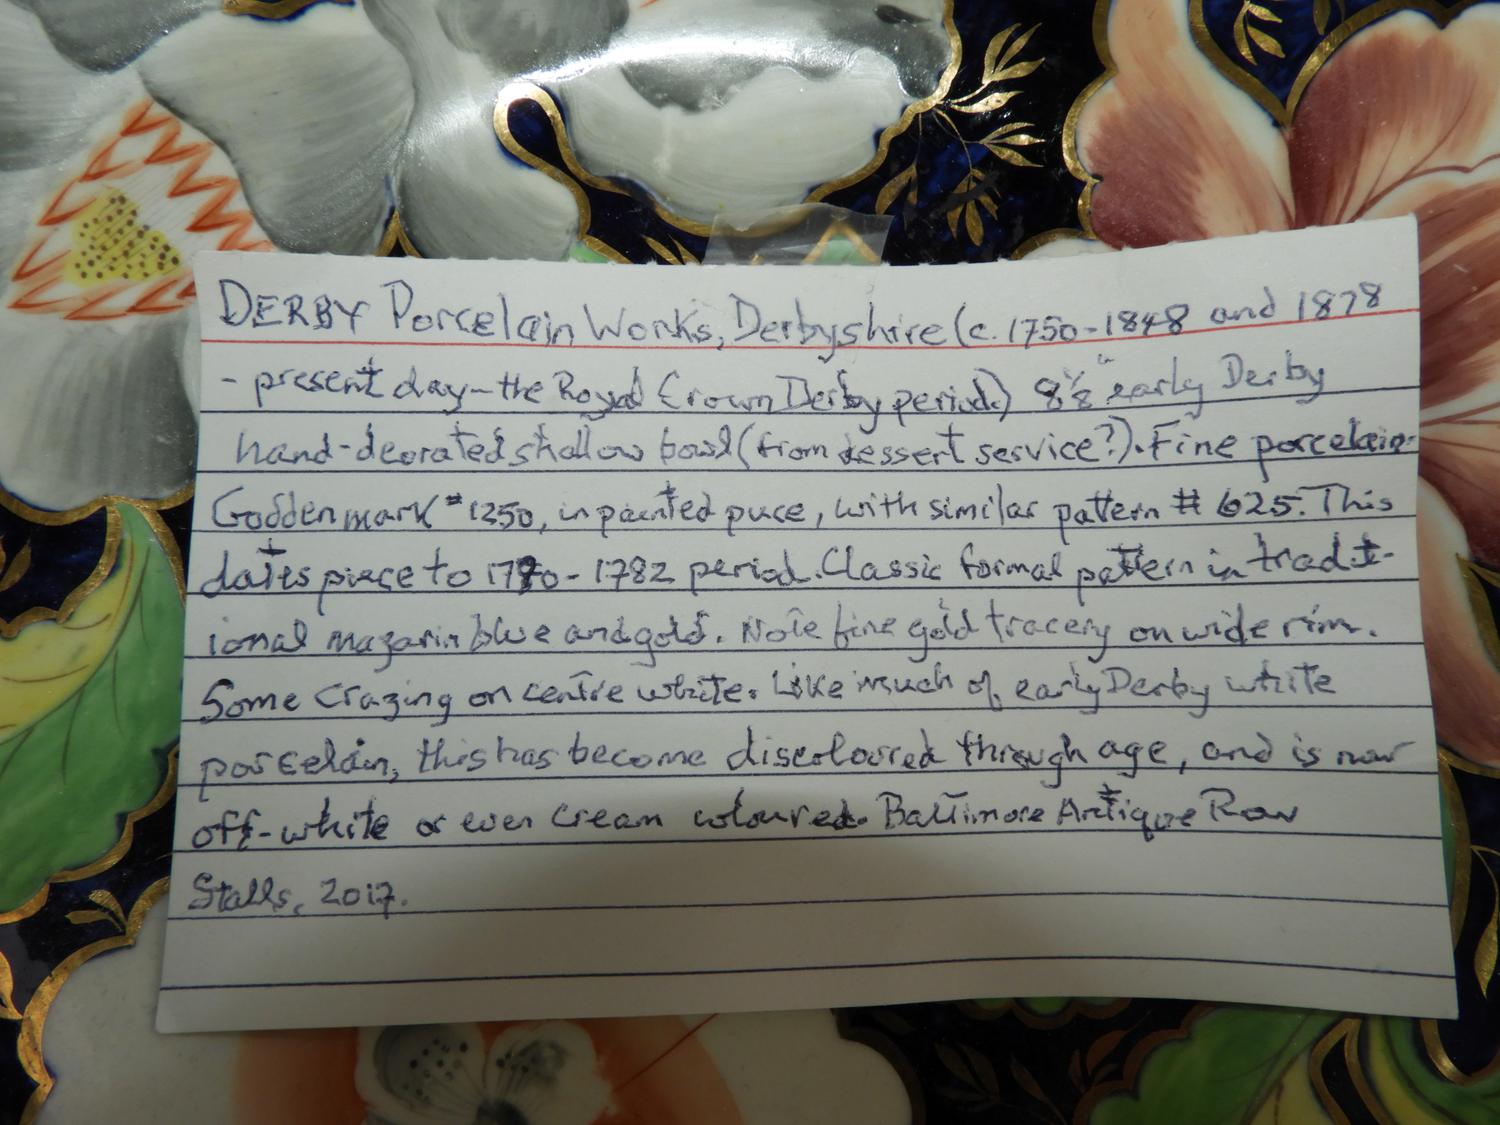 DERBY Porcelain Works, Derbyshire (c. 1750-1848 and 1878
- present day - the Royal Crown Derby period.) 8⅛" early Derby
hand-decorated shallow bowl (from dessert service?). Fine porcelain.
Godden mark #1250, in painted puce, with similar pattern # 625. This
dates piece to 1770 - 1782 period. Classic formal pattern in tradit-
ional mazarin blue and gold. Note fine gold tracery on wide rim.
Some crazing on centre white. Like much of early Derby white
porcelain, this has become discoloured through age, and is now
off-white or even cream coloured. Baltimore Antique Row
Stalls, 2017.